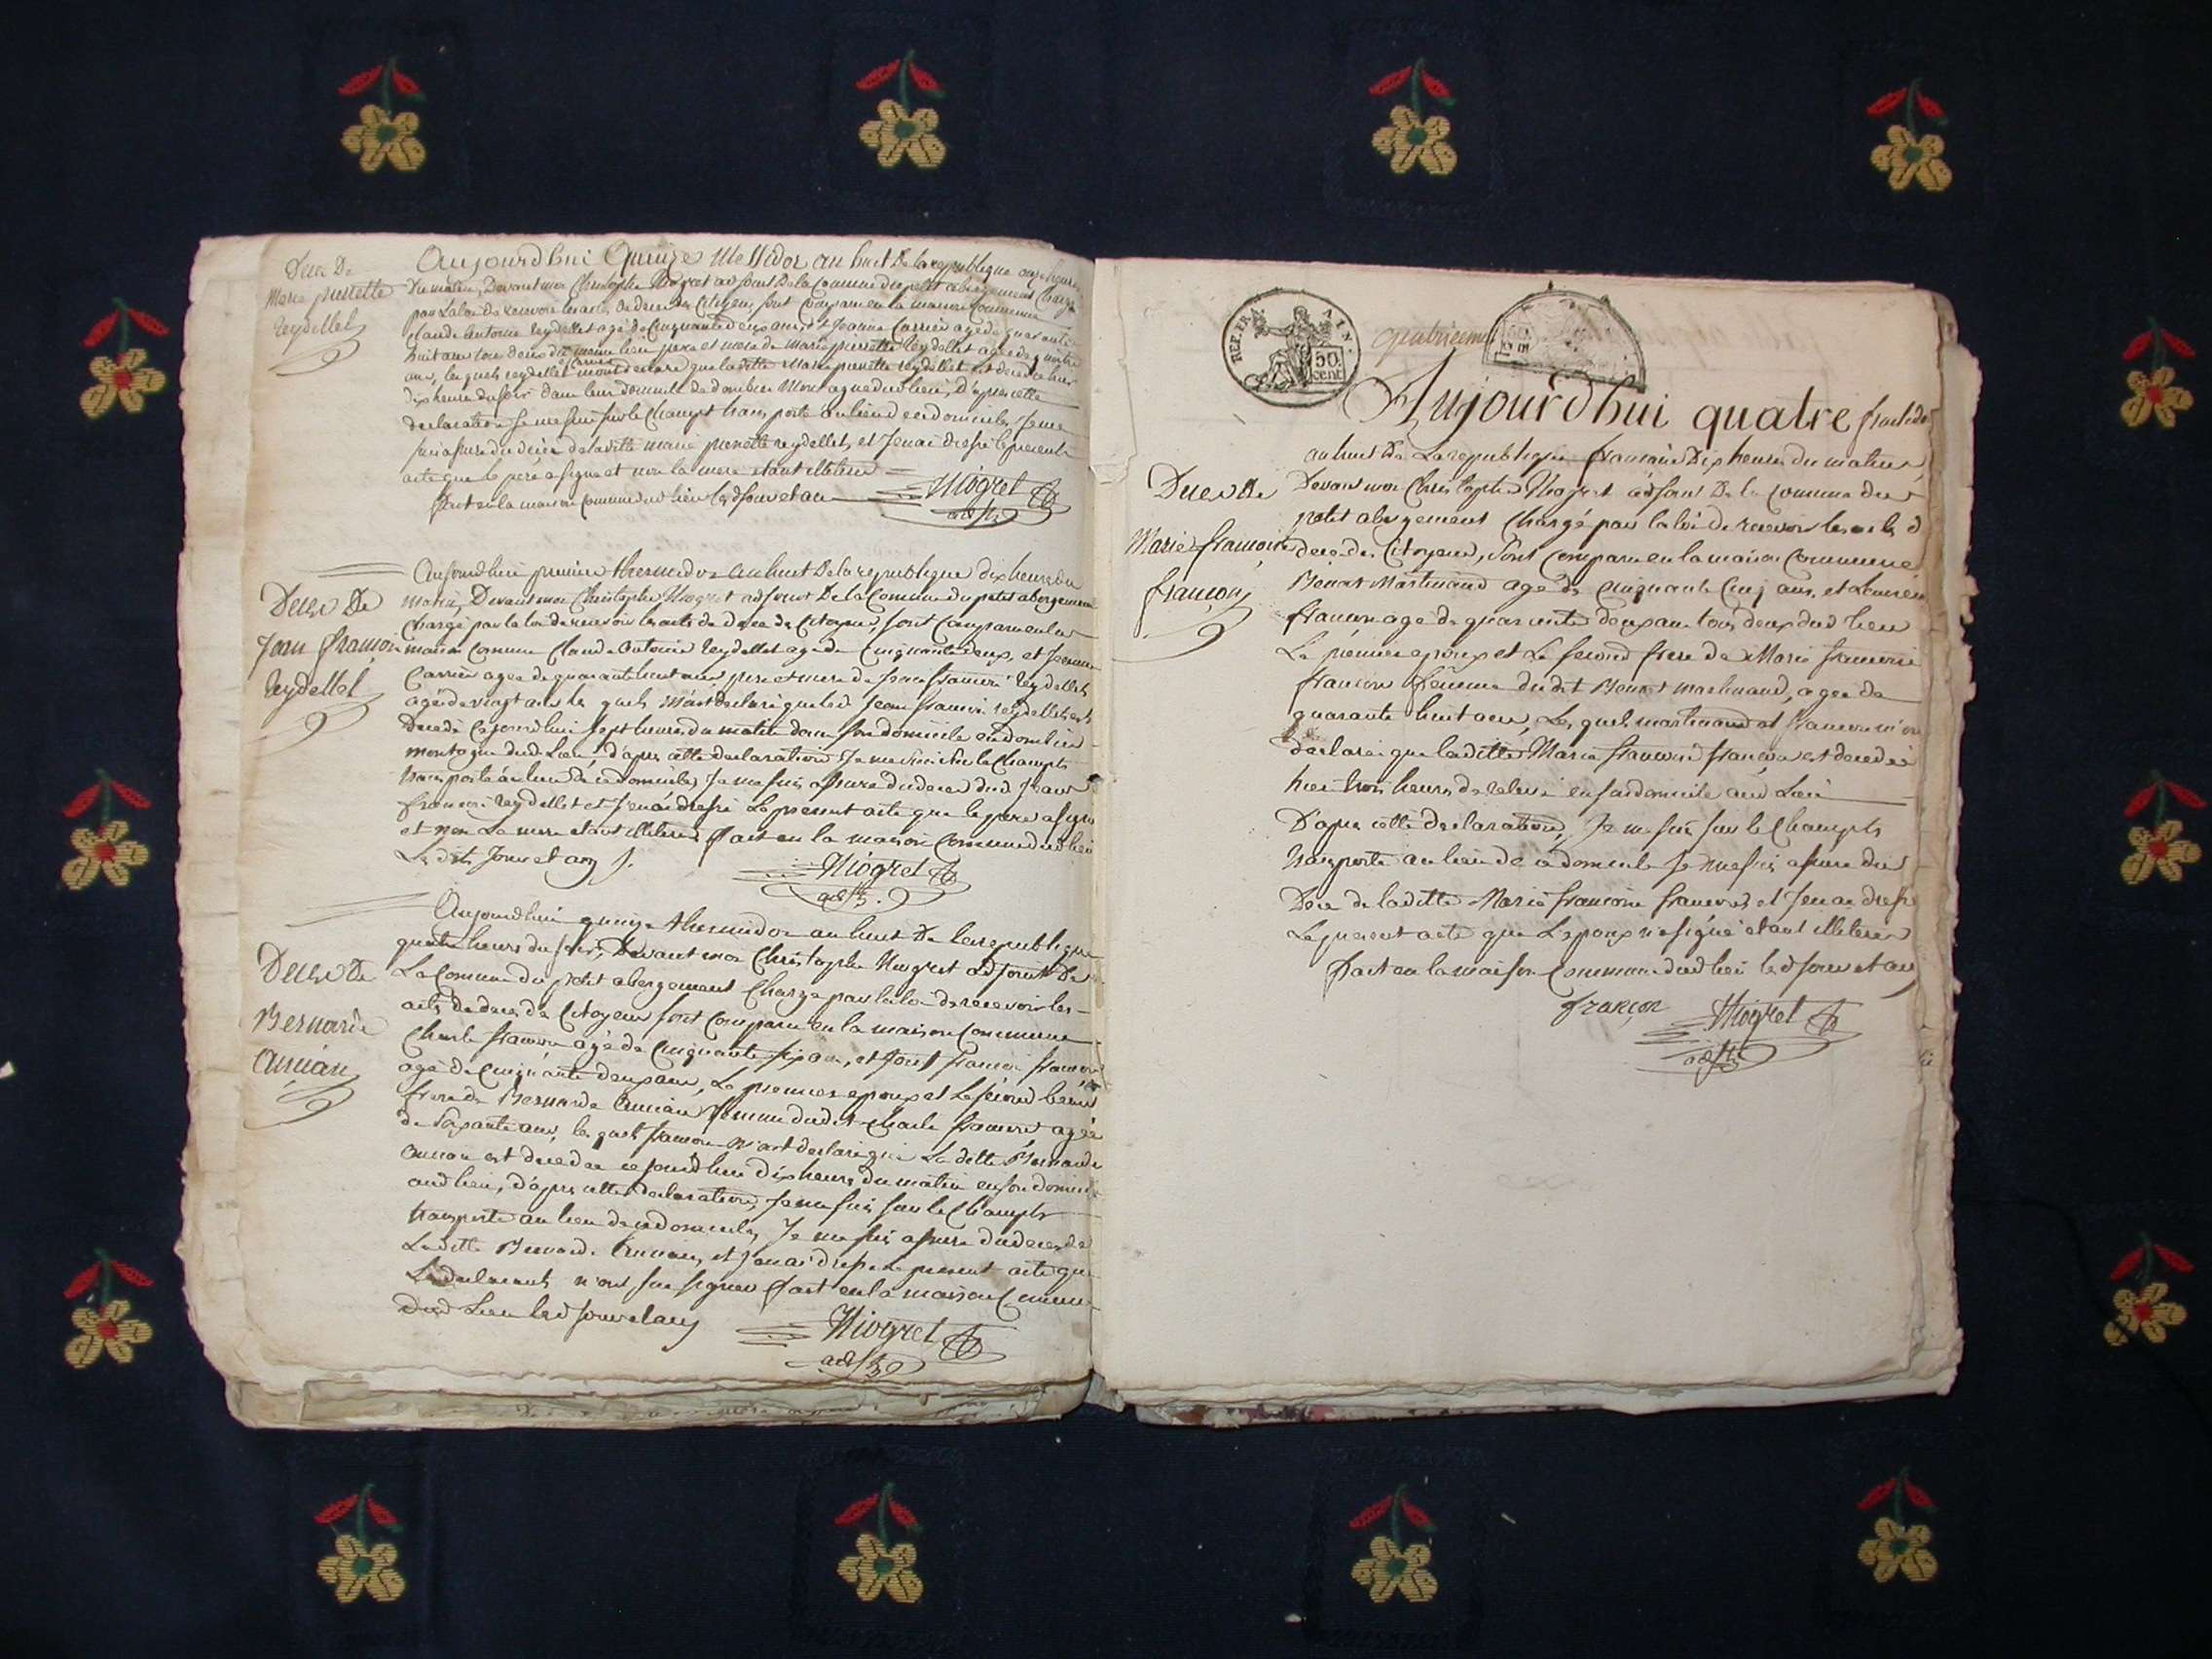 Deces De
Marie pierrette
Reydellet
Aujourd'hui Quinze Messidor an huit De la republique onze heures
Du matin, Devant moi Christophe Niogret adjoint De la Commune du petit abergement Chargé
par la loi de recevoir les actes de deces des Citoyens, sont Comparu en la maison Commune
Claude antoine Reydellet agé de Cinquante deux ans, et Jeanne Carrier agée de quarante
huit ans tous deux du même lieu pere et mere de marie pierrette Reydellet agée de
ans, les quels reydellet et Carrier m'ont declaré que la ditte Marie pierrette reydellet est decedée hier
dix heures du soir dans leur domicile de dombin Montagne dud lieu, D'apres cette
declaration Je me suis sur le Champt transporté au lieu de ce domicile, Je me
suis assuré du déces de la ditte marie pierrette reydellet, et J'en ai dressé le present
acte que le pere a signé et non la mere etant illiterée
fait en la maison Commune dud lieu led Jour et an
Niogret
adjt
Deces De
Jean françoi
Reydellet
Aujourdhui premier thermidor an huit De la republique dix heures du
matin, Devant moi Christophe Niogret adjoint De la Commune du petit abergement
Chargé par la loi de recevoir les actes de deces des Citoyens, sont Comparu en la
maison Commune Claude Antoine Reydellet agé de Cinquante deux, et Jeanne
Carrier agée de quarante huit ans, pere et mere de Jean françoi Reydellet
agé de vingt ans les quels m'ont declaré que led Jean françoi reydellet est
Decedé Cejourdhui sept heures du matin dans son domicile en dombin
montagne dud Lieu, d'apres cette declaration Je me suis sur le Champts
transporté au lieu de ce domicile, Je me suis assuré du deces dud Jean
françoi Reydellet et J'en ai dressé Le present acte que le pere a signé
et non La mere etant illiteree fait en la maison Commune dud lieu
Les dits Jour et an
Niogret
adjt
Deces De
Bernarde
Ancian
Aujourdhui quinze thermidor an huit De la republique
quatre heures du soir, Devant moi Christophe Niogret adjoint De
La Commune du petit abergement Chargé par la loi de recevoir les
acts de deces de Citoyens sont Comparu en la maison Commune
Charle françon agé de Cinquante six ans, et françoi françon
agé de Cinquante deux ans, Le premier epoux et Le second beau
frere de Bernarde Ancian femme dudit Charle françon agée
de Soixante ans, les quels françon m'ont declaré que La ditte Bernarde
Ancian est decedée ce jourdhui dix heures du matin en son domicile
aud lieu, d'apres cette declaration, Je me suis sur le Champts
transporté au lieu de ce domicile, Je me suis assuré du deces de
La ditte Bernarde Ancian, et J'en ai dressé le present acte que
Les declarants n'ont su signer fait en la maison Commune
Dud Lieu led Jour et an
Niogret
adjt
REP. FR.
AIN.
50.
cent.
quatrieme
Aujourd'hui quatre fructidor
an huit De La republique francaise Dix heures du matin
Deces De
Marie françoise
françon
Devant moi Christophe Niogret adjoint De la Commune du
petit abergement Chargé par la loi de recevoir les acts d
deces des Citoyens, sont Comparu en la maison Commune
Benoit Martinand agé de Cinquante Cinq ans, et
françon agé de quarante deux ans tous deux dud lieu
Le premier epoux et Le second frere de Marie françoise
françon femme dudit Benoit martinand, agée de
quarante huit ans, Les quels martinand et françon m'ont
declaré que laditte Marie françoise françon est decedée
hier trois heures de relevée en son domicile aud Lieu
D'apres cette declaration, Je me suis sur le Champts
transporté au lieu de ce domicile Je me suis assuré du
Deces de laditte Marie françoise françon et J'en ai dressé
Le present acte que L'epoux n'a signé etant illiteré
fait en la maison Commune dud lieu led Jour et an
françon
Niogret
adjt